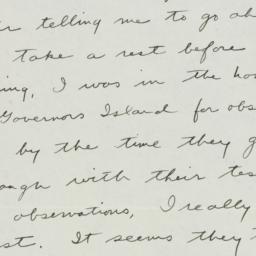 telling me to go
take a rest before
I was in the
Governors Island for
by the time they
with their
observations, I really
It seems they